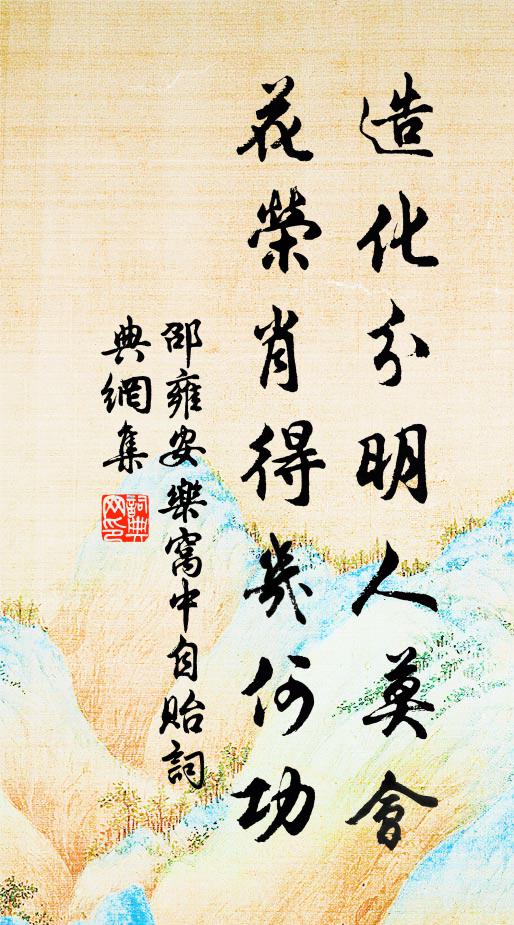 造化分明人莫會
花榮肖得幾何功
邵雍安樂窩中自貽詞
典網集
詞典
网印